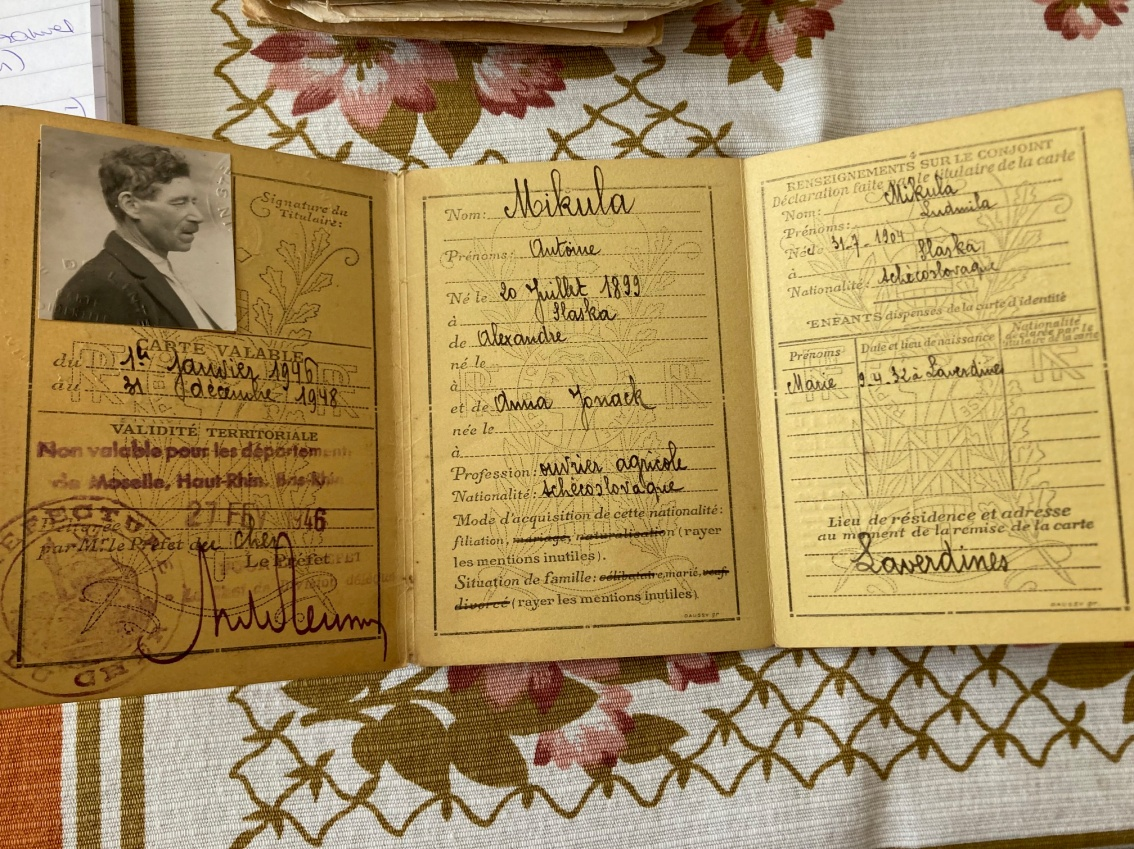 Signature du
Titulaire:
CARTE VALABLE
du 1er Janvier 1946
au 31 décembre 1948
VALIDITÉ TERRITORIALE
Non valable pour les départements
de Moselle, Haut-Rhin, Bas-Rhin
27 FEV 1946
par Mr le Préfet du Cher
Le Préfet
Nom: Mikula
Prénoms: Antoine
Né le 20 Juillet 1899
à Plaska
de Alexandre
né le
à
et de Anna Jonack
née le
à
Profession: ouvrier agricole
Nationalité: tchécoslovaque
Mode d'acquisition de cette nationalité:
filiation, mariage, naturalisation (rayer
les mentions inutiles).
Situation de famille: célibataire, marié, veuf
divorcé (rayer les mentions inutiles)
RENSEIGNEMENTS SUR LE CONJOINT
Déclaration faite par le titulaire de la carte
Nom: Mikula
Prénoms: Ludmila
Née le 31-7-1904
à Plaska
Nationalité: tchécoslovaque
ENFANTS dispensés de la carte d'identité
Prénoms Date et lieu de naissance Nationalité
déclarée par le
titulaire de la carte
Marie 9.4.32 à Laverdines
Lieu de résidence et adresse
au moment de la remise de la carte
Laverdines